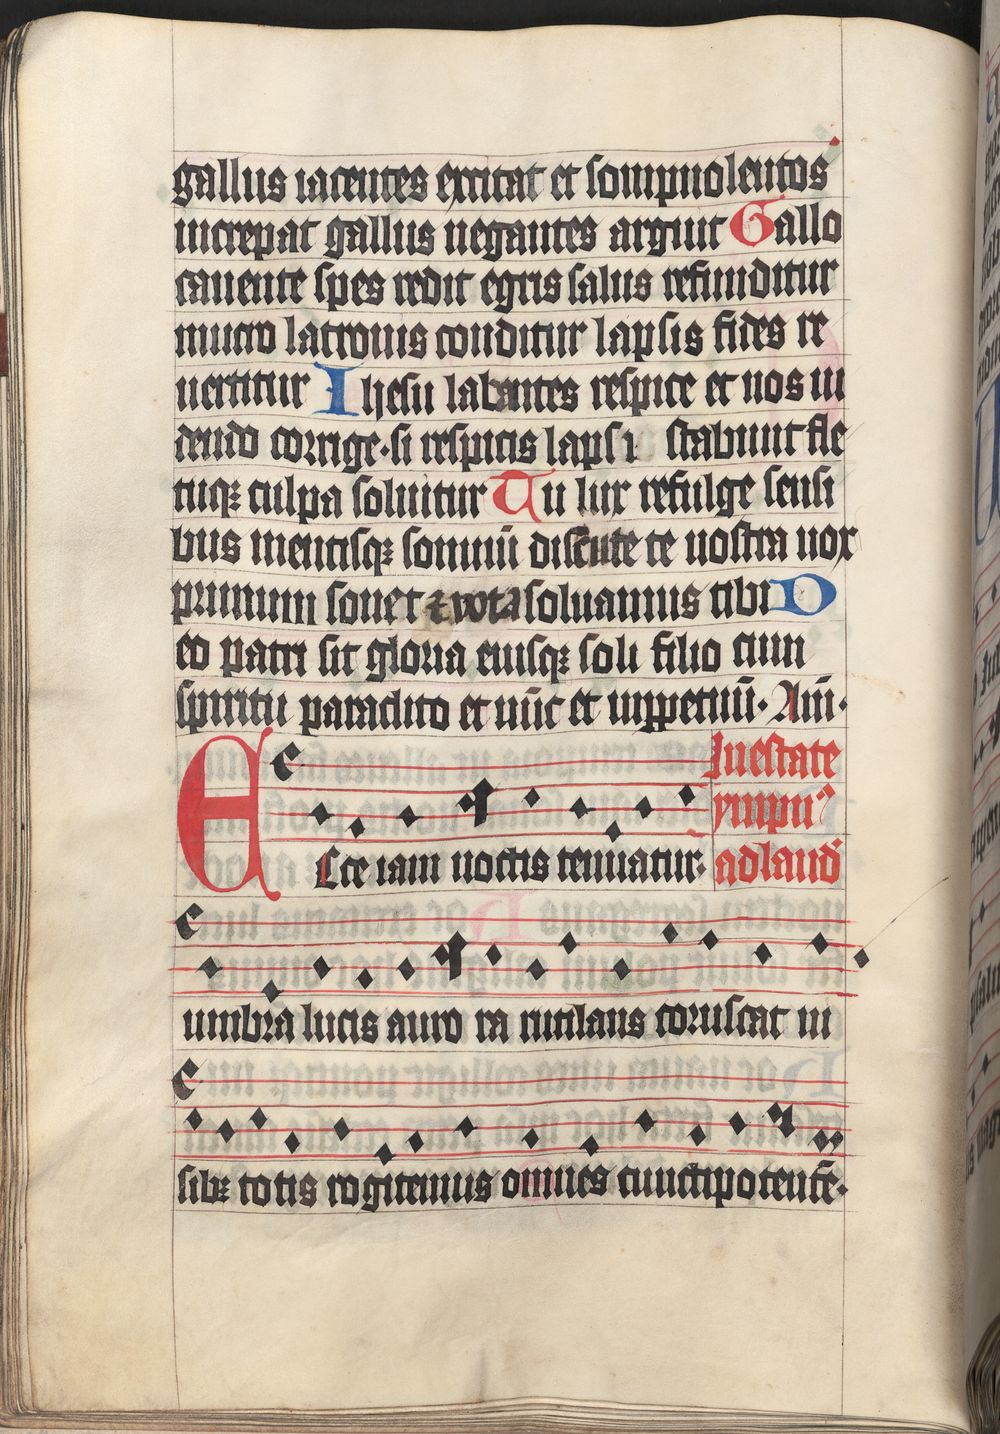 gallus iacentes excitat et sompnolentos
increpat gallus negantes arguit Gallo
canente spes redit egris salus refunditur
mucro latronis conditur lapsis fides re
uertitur Ihesu labantes respice et nos ui
dendo corrige. si respicis lapsi stabunt fle
tuqꝫ culpa soluitur Tu lux refulge sensi
bus mentisqꝫ somnū discute te nostra uox
primum sonet ⁊ vota soluamus tibi D
eo patri sit gloria eiusqꝫ soli filio cum
spiritu paraclito et nūc et inꝑpetuū. Am̄.
In estate
ympn᷒
Ecce iam noctis tenuatur
ad laud
umbra lucis auro ra rutilans coruscat ni
sibꝫ totis rogitemus omnes cunctipotentē.